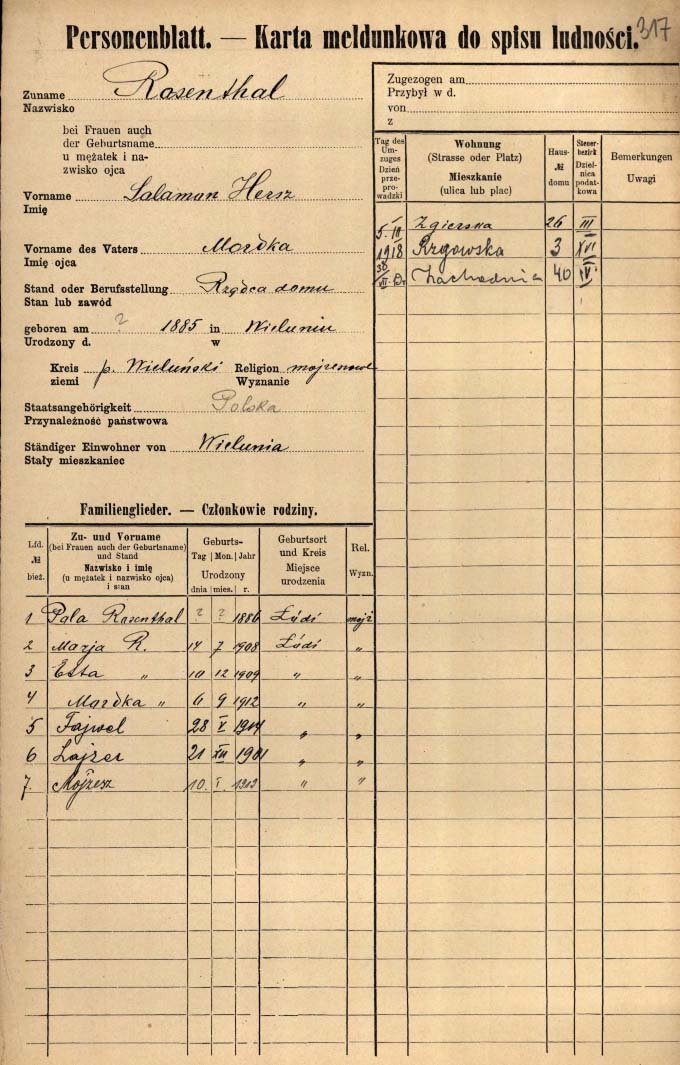 317
Personenblatt. — Karta meldunkowa do spisu ludności.
Zuname Rosenthal
Nazwisko
bei Frauen auch
der Geburtsname
u mężatek i na-
zwisko ojca
Vorname Salamon Hersz
Imię
Vorname des Vaters Mordka
Imię ojca
Stand oder Berufsstellung Rządca domu
Stan lub zawód
geboren am ? 1885 in Wieluniu
Urodzony d. w
Kreis p. Wieluński Religion
ziemi Wyznanie
Staatsangehörigkeit Polska
Przynależność państwowa
Ständiger Einwohner von Wielunia
Stały mieszkaniec
Zugezogen am
Przybył w d.
von
z
Tag des Um-zuges Dzień prze-prowadzki | Wohnung (Strasse oder Platz) Mieszkanie (ulica lub plac) | Haus-№ domu | Steuer-bezirk Dzielnica podat-kowa | Bemerkungen Uwagi
Zgierska 26 III
1918 Rzgowska 3 XVI
Zachodnia 40
Familienglieder. — Członkowie rodziny.
Lfd. № bież. | Zu- und Vorname (bei Frauen auch der Geburtsname) und Stand Nazwisko i imię (u mężatek i nazwisko ojca) i stan | Geburts- Tag Mon. Jahr Urodzony dnia mies. r. | Geburtsort und Kreis Miejsce urodzenia | Rel. Wyzn.
1 Pala Rosenthal ? ? 1886 Łódź mojż
2 Marja R. 14 7 1908 Łódź "
3 Esta " 10 12 1909 " "
4 Mordka " 6 9 1912 " "
5 Fajwel 28 V 1914 " "
6 Lajzer 21 XII 1901 " "
7. Mojżesz 10. I. 1913 " "